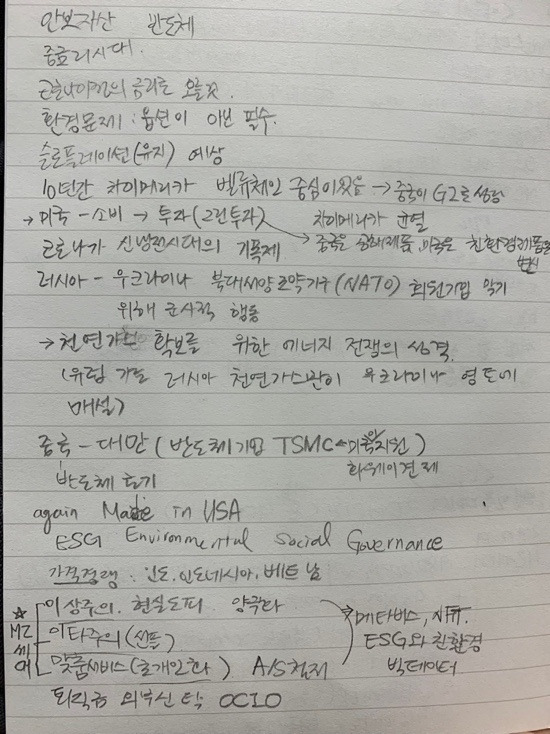 안보자산 반도체
중금리시대.
코로나이전의 금리로 오를것.
환경문제 : 옵션이 아닌 필수.
슬로플레이션(유지) 예상
10년간 차이메리카 벨류체인 중심이었음 → 중국이 G2로 성장
→ 미국 - 소비 → 투자 (그린투자) 차이메리카 균열
코로나가 신냉전시대의 기폭제 → 중국은 미국은 친환경제품으로 변신
러시아 - 우크라이나 북대서양조약기구(NATO) 회원가입 막기
위해 군사적 행동
→ 천연가스 확보를 위한 에너지 전쟁의 성격.
(유럽 가는 러시아 천연가스관이 우크라이나 영토에
매설)
중국 - 대만 (반도체기업 TSMC ← 미국의지원)
반도체 화웨이견제
again Made in USA
ESG Environmental Social Governance
가격경쟁 : 인도. 인도네시아. 베트남
☆ MZ세대
이상주의. 현실도피 양극화
이타주의 (선플)
맞춤서비스 (초개인화) A/S철저
→ 메타버스, NFT.
ESG와 친환경
빅데이터
퇴직금 외부신탁 OCIO